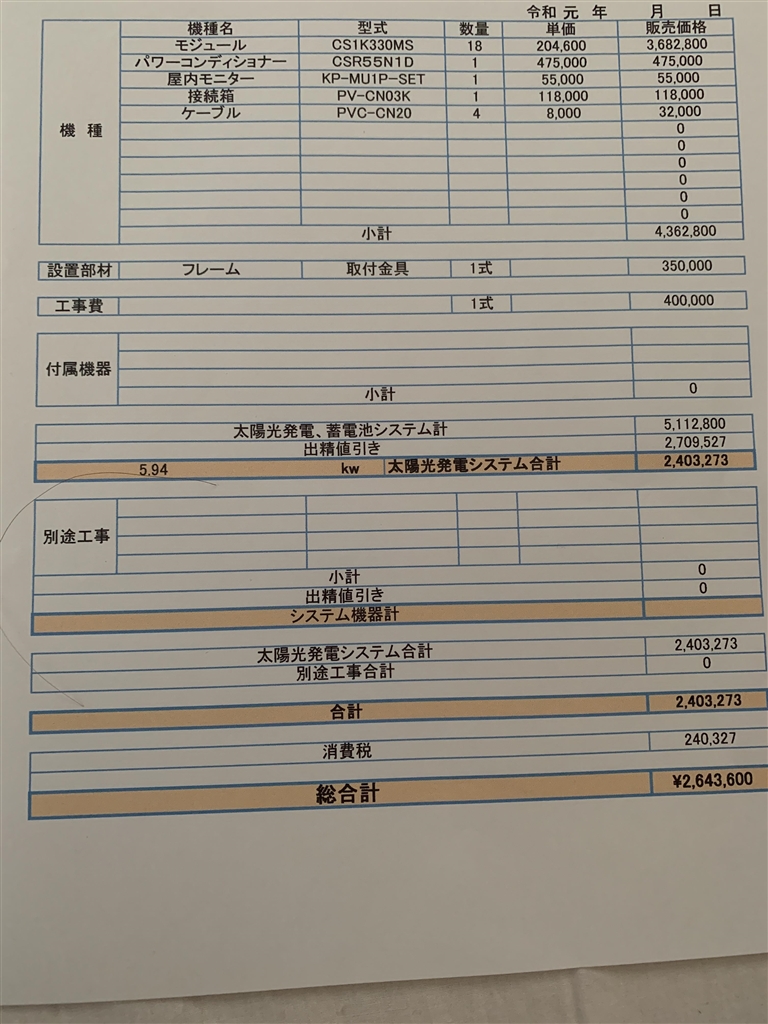 令和 元 年 月 日
機種名 型式 数量 単価 販売価格
モジュール CS1K330MS 18 204,600 3,682,800
パワーコンディショナー CSR55N1D 1 475,000 475,000
屋内モニター KP-MU1P-SET 1 55,000 55,000
接続箱 PV-CN03K 1 118,000 118,000
ケーブル PVC-CN20 4 8,000 32,000
機 種 0
0
0
0
0
0
小計 4,362,800
設置部材 フレーム 取付金具 1式 350,000
工事費 1式 400,000
付属機器
小計 0
太陽光発電、蓄電池システム計 5,112,800
出精値引き 2,709,527
5.94 kw 太陽光発電システム合計 2,403,273
別途工事
小計 0
出精値引き 0
システム機器計
太陽光発電システム合計 2,403,273
別途工事合計 0
合計 2,403,273
消費税 240,327
総合計 ¥2,643,600